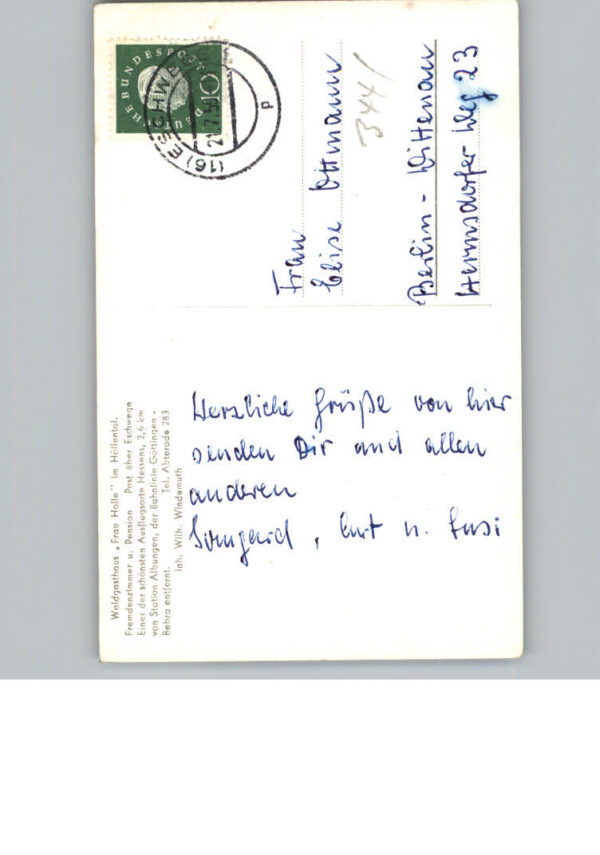 Waldgasthaus „Frau Holle" im Höllental.
Fremdenzimmer u. Pension Post über Eschwege
Einer der schönsten Ausflugsorte Hessens, 2,6 km
von Station Albungen, der Bahnlinie Göttingen -
Bebra entfernt. Tel. Abterode 283
Inh. Wilh. Windemuth
Herzliche Grüße von hier
senden Dir und allen
anderen
Irmgard, Curt u. Susi
DEUTSCHE BUNDESPOST
(16) ESCHWE
21.7.
Frau
Elise Ottmann
344/
Berlin - Wittenau
Hermsdorfer Weg 23